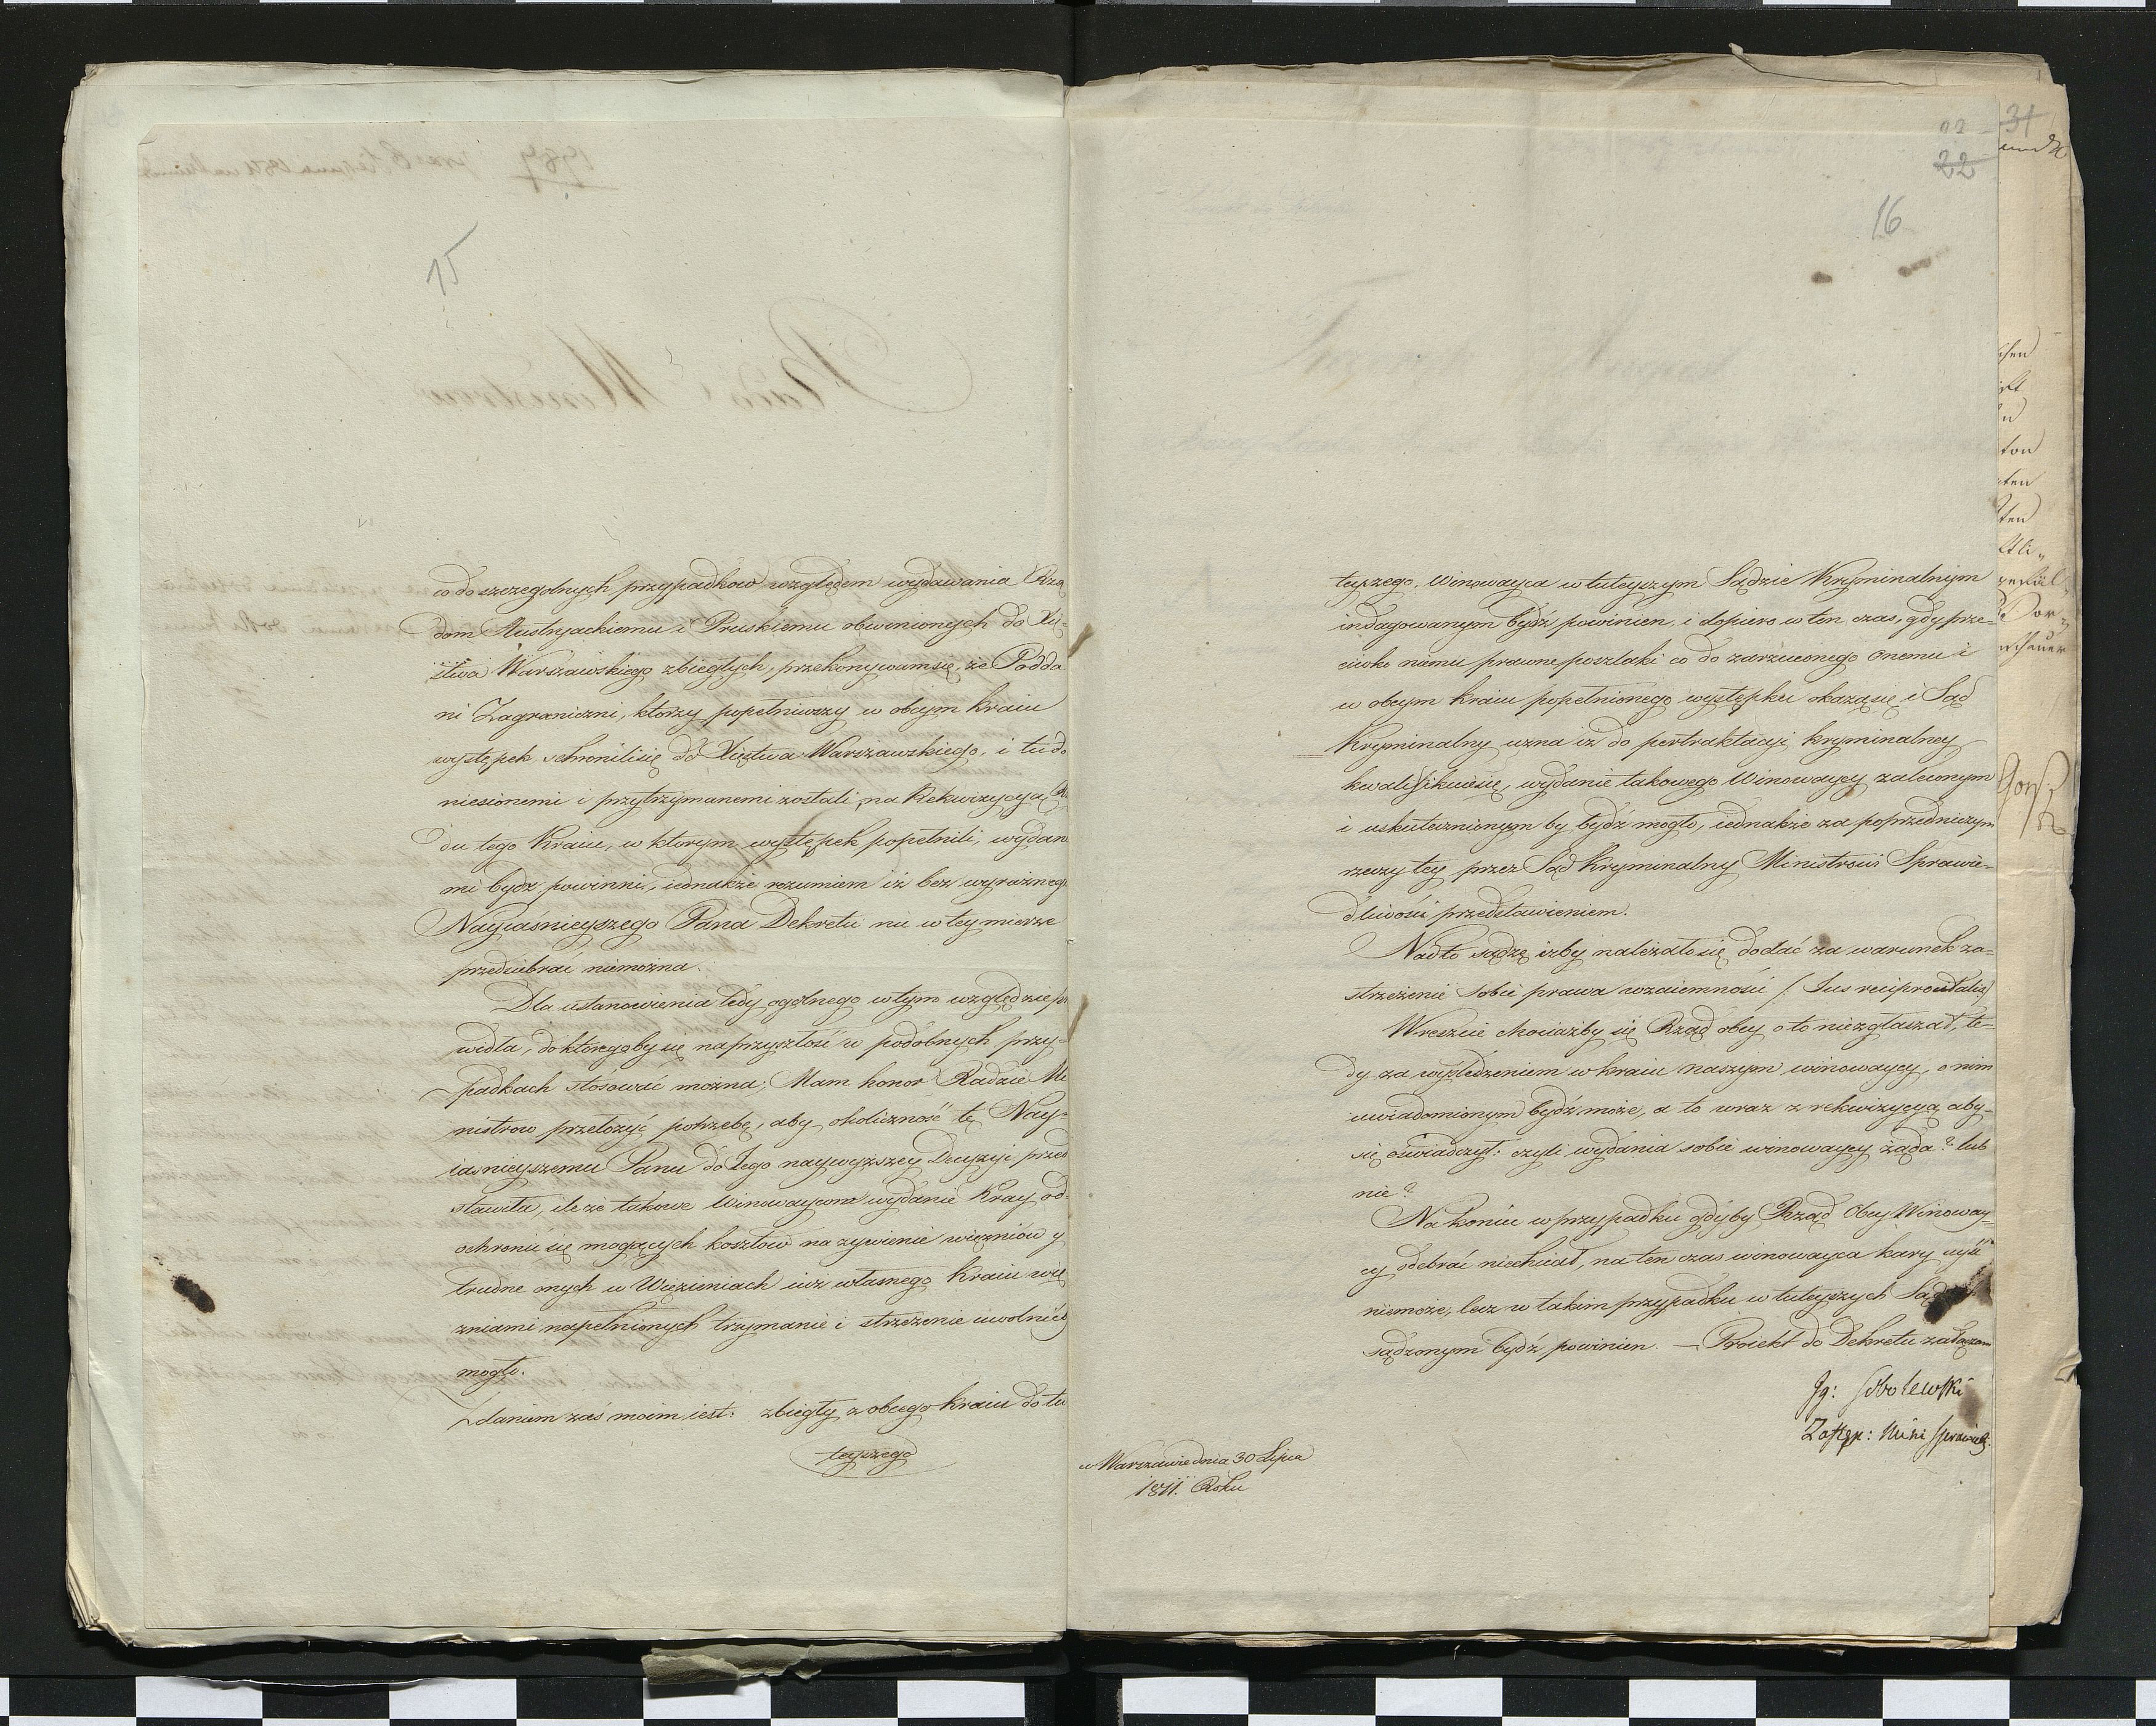 15
co do szczegolnych przypadkow względem wydawania Rzą
dom Austryackiemu i Pruskiemu obwinionych do Xię-
stwa Warszawskiego zbiegłych, przekonywam się, że Podda
ni Zagraniczni, ktorzy popełniwszy w obcym kraiu
występek schronili się do Xięstwa Warszawskiego, i tu do
niesionemi i przytrzymanemi zostali, na Rekwizycyą
du tego Kraiu, w ktorym występek popełnili, wydane
mi bydź powinni, iednakże rozumiem iż bez wyraźnego
Nayiaśnieyszego Pana Dekretu nic w tey mierze
przedsiebrać niemożna.
Dla ustanowienia tedy ogolnego w tym względzie pr
widła, do ktoregoby się na przyszłość w podobnych przy-
padkach stosować można; Mam honor Radzie Mi
nistrow przełożyć potrzebę, aby okoliczność tę Nay-
iaśnieyszemu Panu do Jego naywyższey Decyzyi przed
stawiła, ile że takowe Winowaycow wydanie Kray od
ochronić się mogących kosztow na żywienie więzniów y
trudne onych w Więzieniach iuż własnego Kraiu wię
zniami napełnionych trzymanie i strzeżenie uwolnićby
mogło.
Zdaniem zaś moim iest: zbiegły z obcego kraiu do tu
teyszego
31
22
22
16
teyszego, Winowayca w tuteyszym Sądzie Kryminalnym
indagowanym bydź powinien, i dopiero w ten czas, gdy prze-
ciwko niemu prawne poszlaki co do zarzuconego onemu i
w obcym kraiu popełnionego występku okażą się i Sąd
Kryminalny uzna iż do pertraktacyi kryminalney
kwalifikuie się, wydanie takowego Winowaycy zaleconym
i uskutecznionym by bydź mogło, iednakże za poprzedniczym
rzeczy tey przez Sąd Kryminalny Ministrowi Sprawie-
dliwości przedstawieniem.
Nadto sądzę iżby należało się dodać za warunek za-
strzeżenie sobie prawa wzaiemności (Jus reciprocitatis)
Wreszcie chociażby się Rząd obcy o to niezgłaszał, te-
dy za wyśledzeniem w kraiu naszym winowaycy, o nim
uwiadomionym bydź może, a to wraz z rekwizycyą aby-
się oświadczył: czyli wydania sobie winowaycy żąda? lub
nie?
Na koniec w przypadku gdyby Rząd Obcy Winoway-
cy odebrać niechciał, na ten czas winowayca kary uyść
niemoże, lecz w takim przypadku w tuteyszych
sądzonym bydź powinien. — Proiekt do Dekretu załączam
Jg: Sobolewski
Zastęp: Mini Sprawied:
w Warszawie dnia 30 Lipca
1811. Roku